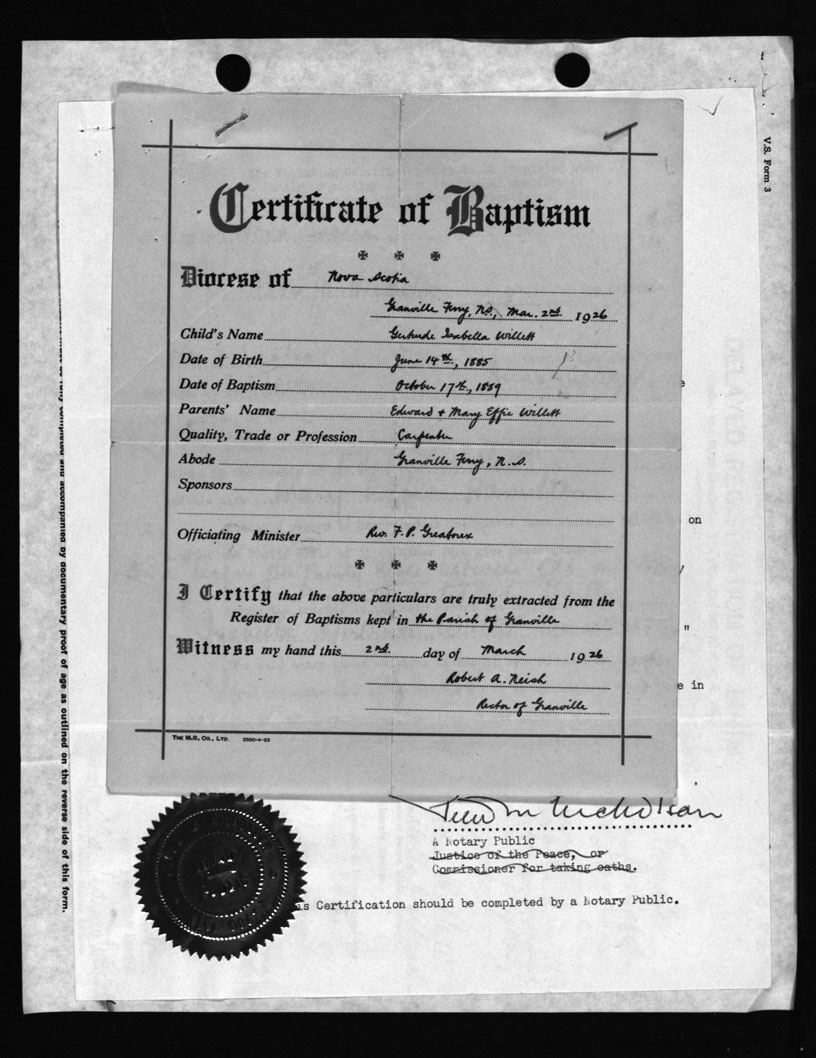 V.S. Form 3
Certificate of Baptism
Diocese of Nova Scotia
Granville Ferry, N.S., Mar. 2nd 1926
Child's Name Gertrude Isabella Willett
Date of Birth June 14th, 1885
Date of Baptism October 17th, 1889
Parents' Name Edward + Mary Effie Willett
Quality, Trade or Profession Carpenter
Abode Granville Ferry, N.S.
Sponsors
Officiating Minister Rev. F. P. Greatorex
I Certify that the above particulars are truly extracted from the
Register of Baptisms kept in the Parish of Granville
Witness my hand this 2nd. day of March 1926
Robert A. Neish
Rector of Granville
THE M.B. CO., LTD. 2500-4-23
e
on
"
e in
Nicholson
A Notary Public
Justice of the Peace, or
Commissioner for taking oaths.
Certification should be completed by a Notary Public.
fully completed and accompanied by documentary proof of age as outlined on the reverse side of this form.